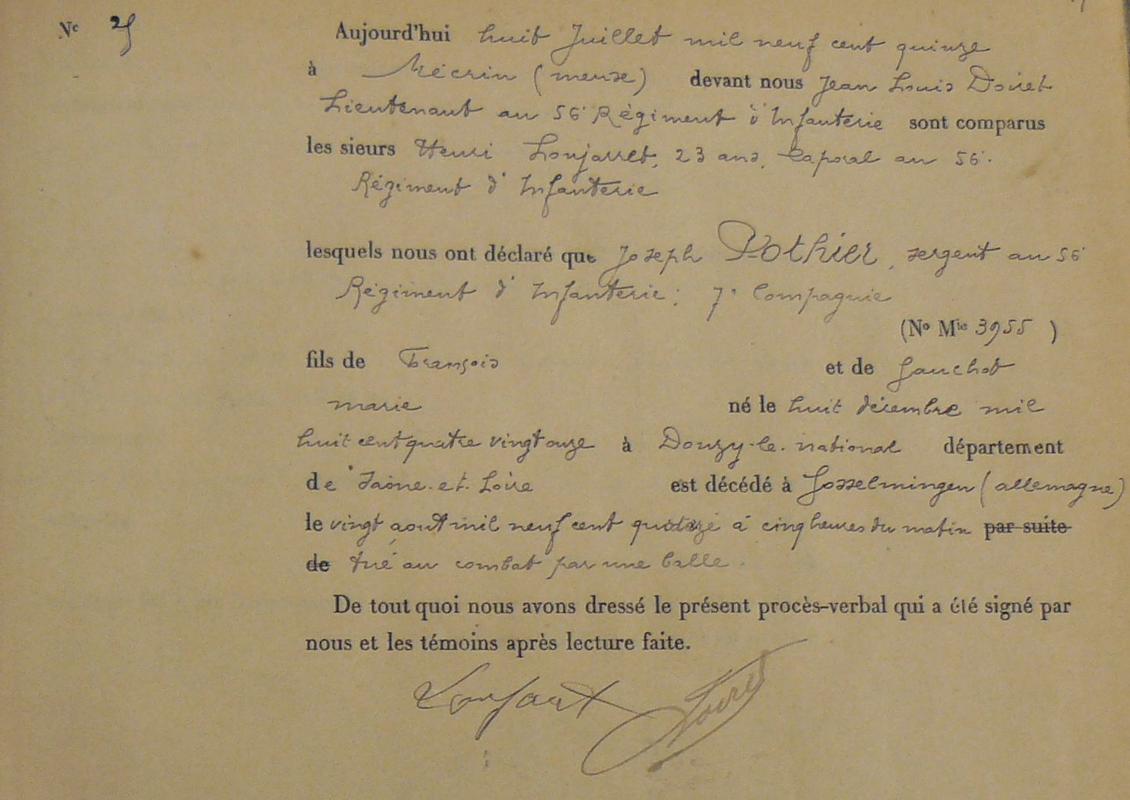 N° 25
Aujourd'hui huit Juillet mil neuf cent quinze
à Mécrin (meuse) devant nous Jean Louis Doiret
Lieutenant au 56' Régiment d'Infanterie sont comparus
les sieurs Henri Loujarret, 23 ans, Caporal au 56'
Régiment d'Infanterie
lesquels nous ont déclaré que Joseph Pothier, sergent au 56'
Régiment d'Infanterie; 7' Compagnie
(N° Mle 3955 )
fils de François et de Gauchot
marie né le huit décembre mil
huit cent quatre vingt onze à Donzy-le-national département
de Saône-et-Loire est décédé à Gosselmingen (allemagne)
le vingt août mil neuf cent quatorze à cinq heures du matin par suite
de tué au combat par une balle.
De tout quoi nous avons dressé le présent procès-verbal qui a été signé par
nous et les témoins après lecture faite.